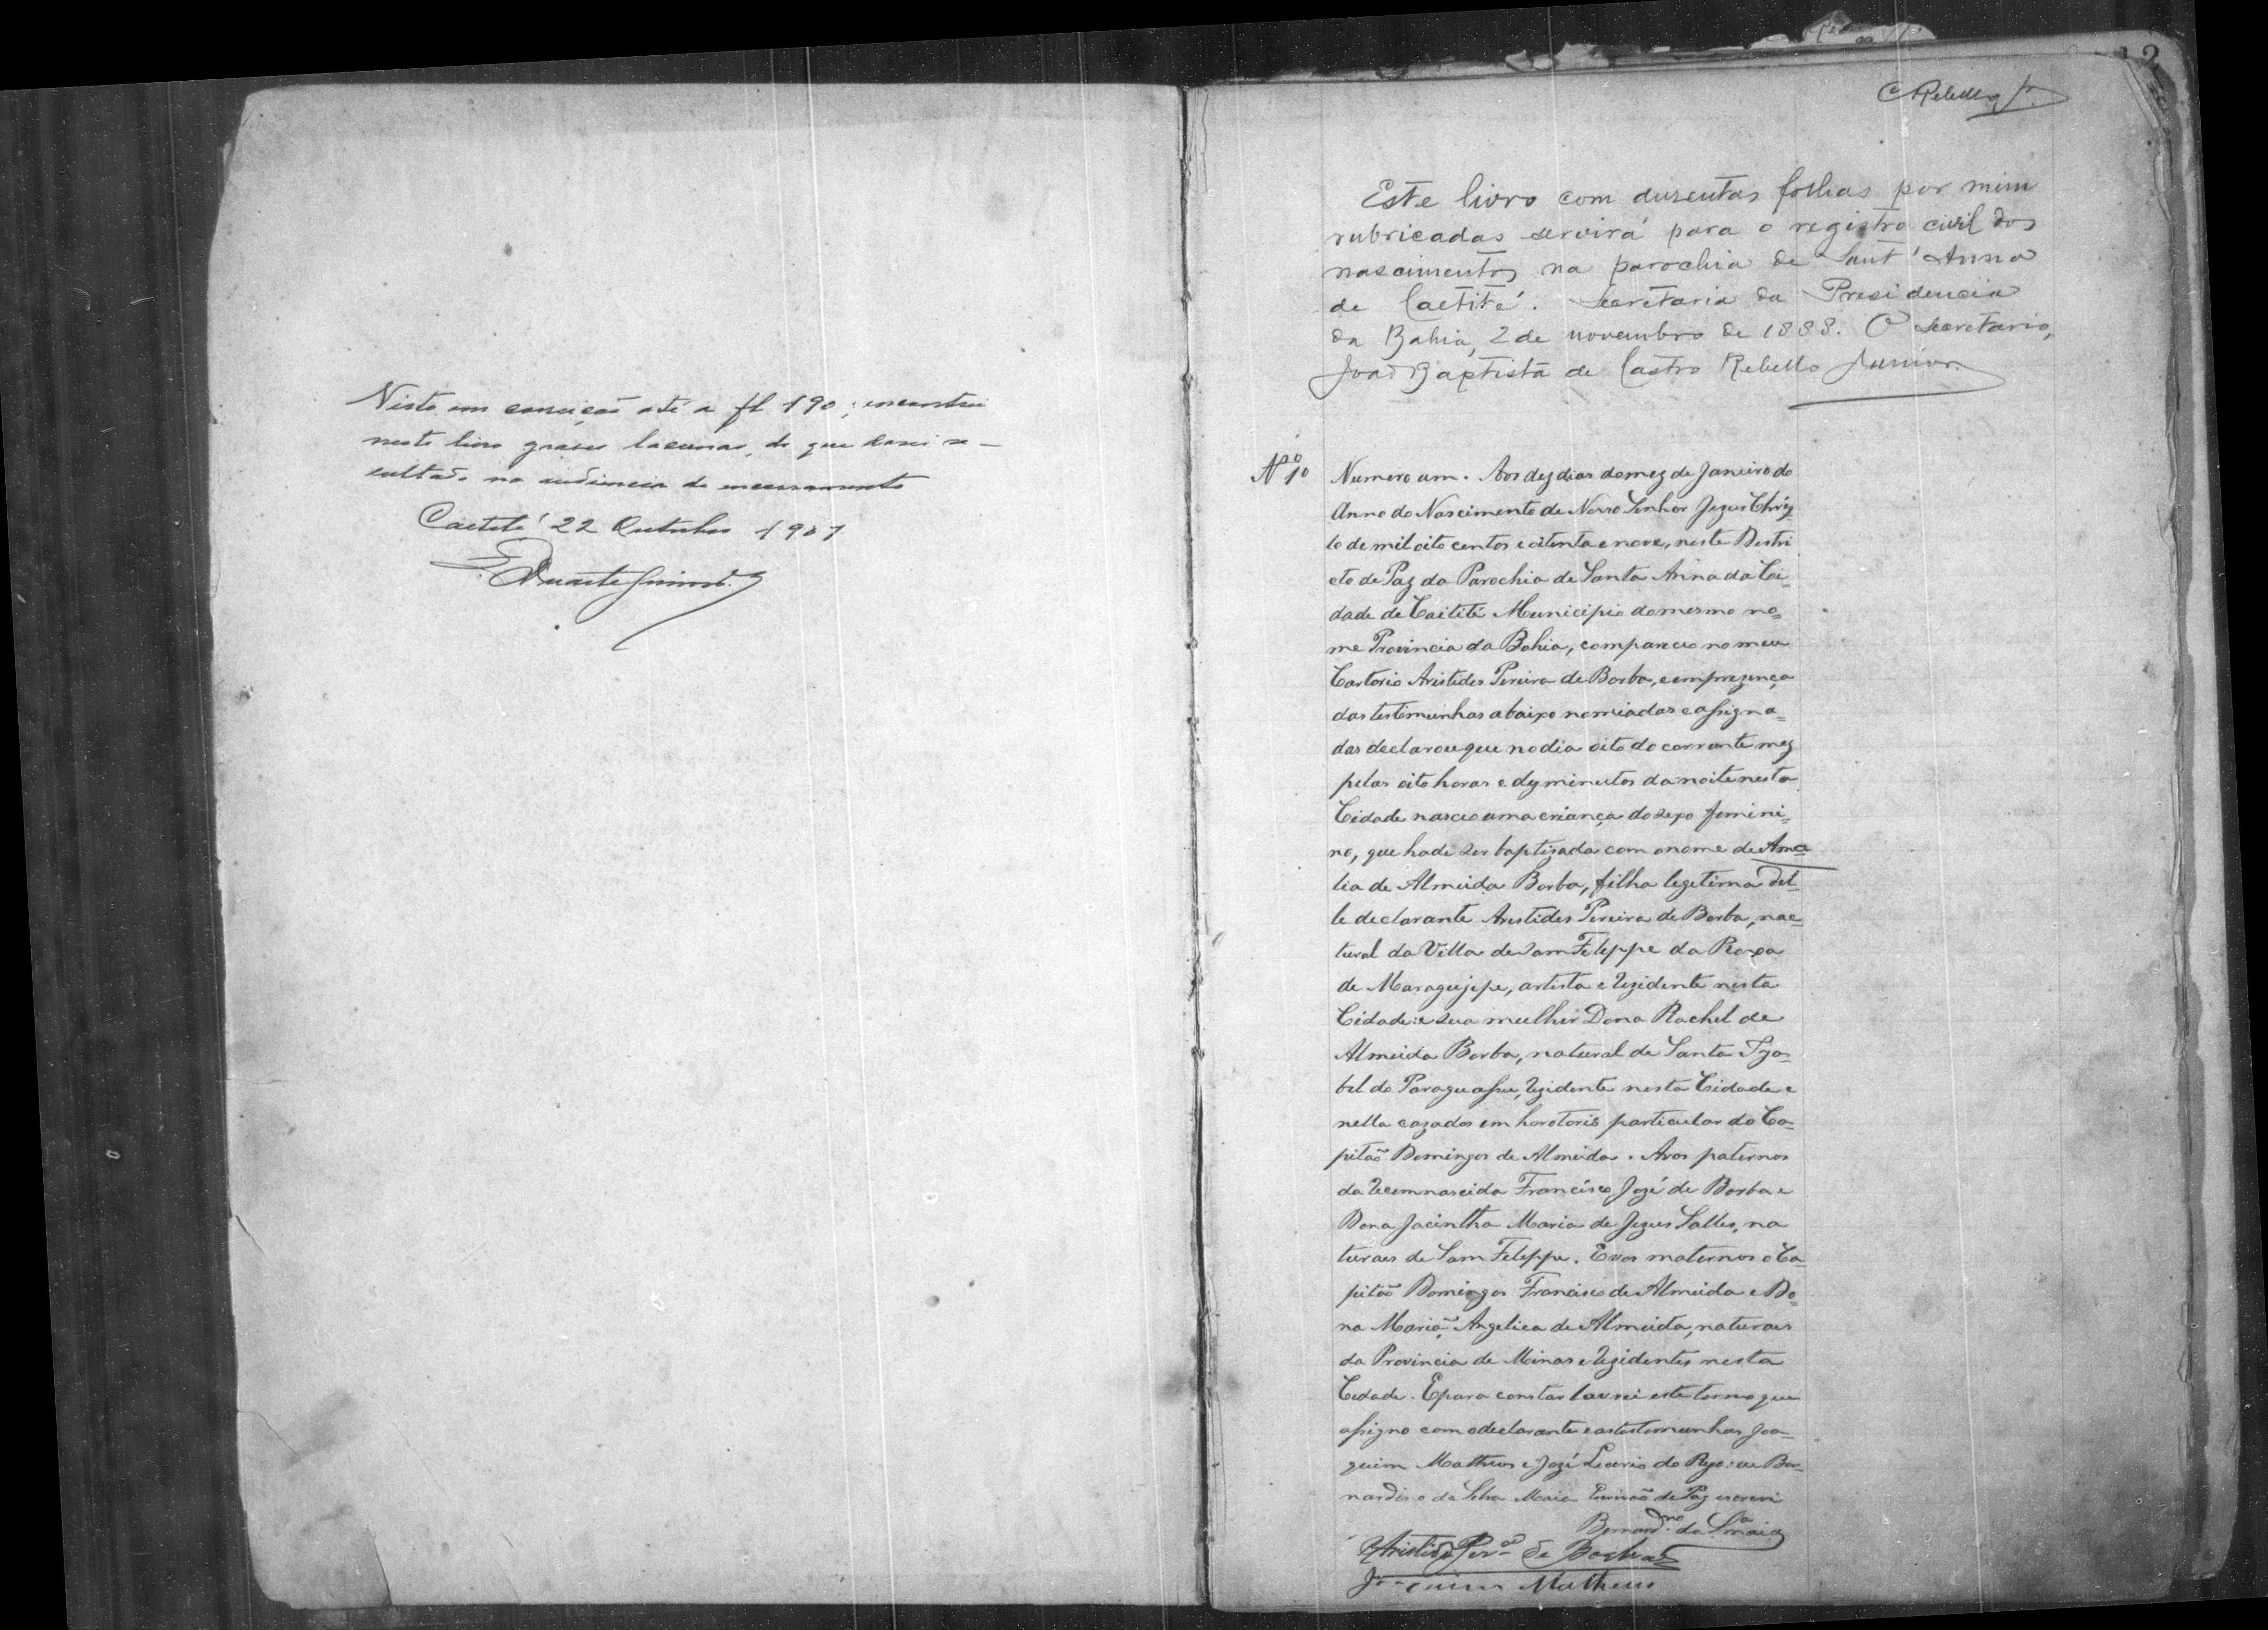 Visto em correição até a fl 190; encontrei
neste livro graves lacunas, do que darei re-
sultado na audiencia de encerramento
Caeteté 22 Outubro 1901
C Rebello Jr.
Este livro com duzentas folhas por mim
rubricadas servirá para o registro civil dos
nascimentos na parochia de Sant'Anna
de Caetité. Secretaria da Presidencia
da Bahia, 2 de novembro de 1888. O Secretario,
João Baptista de Castro Rebello Junior.
Nº 1º Numero um. Aos dez dias do mez de Janeiro do
Anno do Nascimento de Nosso Senhor Jezus Chris-
to de mil oito centos e oitenta e nove, neste Destri
cto de Paz da Parochia de Santa Anna da Ci-
dade de Caitité Municipio do mesmo no=
me Provincia da Bahia, compareceo no meu
Cartorio Aristides Pereira de Borba, e em prezença
das testimunhas abaixo nomiadas e assigna=
das declarou que no dia oito do corrante mez
pelas oito horas e dez minutos da noite nesta
Cidade nasceo uma criança do sexo femini=
no, que hade ser baptizada com o nome de Ama
lia de Almeida Borba, filha legetima del-
le declarante Arestides Pereira de Borba, na=
tural da Villa de Sam Feleppe da Roça
de Maragujipe, artista e rezidente nesta
Cidade: e sua mulher Dona Rachel de
Almeida Borba, natural de Santa Iza-
bel do Paraguassu, rezidente nesta Cidade e
nella cazados em horotorio particular do Ca-
pitaõ Domingos de Almeida. Avos paternos
da recemnascida Francisco Jozé de Borba e
Dona Jacintha Maria de Jezus Salles, na
turaes de Sam Feleppe. E vos maternos o Ca-
pitaõ Domingos Francisco de Almeida e Do=
na Maria Angelica de Almeida, naturaes
da Provincia de Minas e rezidentes nesta
Cedade. E para constar lavrei este termo que
assigno com o declarante e as testemunhas Joa-
quim Matheus e Jozé Lecerio do Rego: eu Ber-
nardino da Silva Maia Escrivaõ de Paz escrevi
Bernardno da Sa Maia
Aristides Pera de Borba
Joaquim Matheus